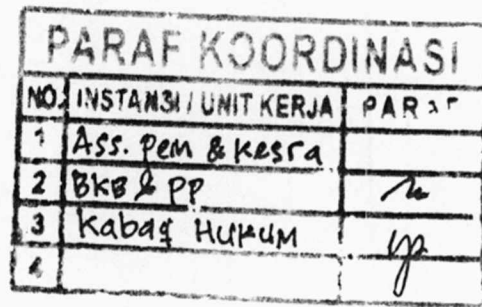 PARAF KOORDINASI
NO. INSTANSI / UNIT KERJA PARAF
1 Ass. Pem & Kesra
2 BKB & PP
3 Kabag HUKUM
4